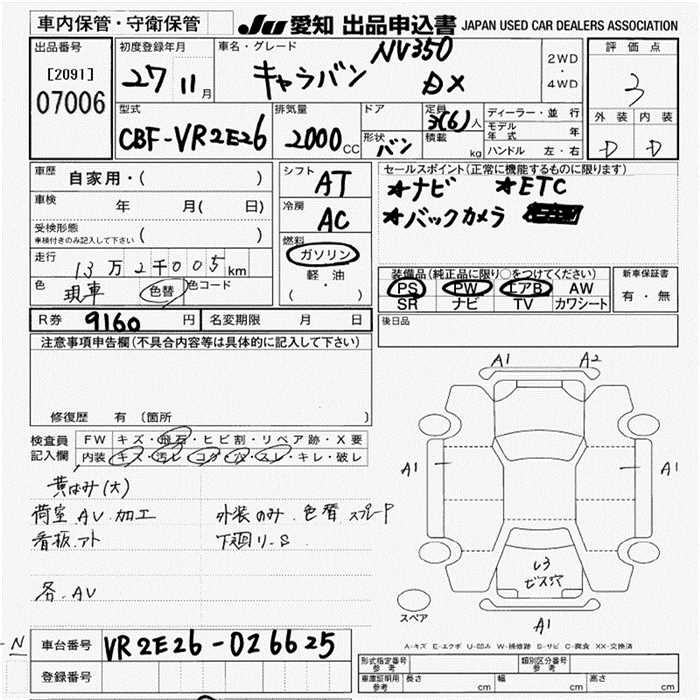 車内保管・守衛保管
JU 愛知 出品申込書 JAPAN USED CAR DEALERS ASSOCIATION
出品番号
[2091]
07006
初度登録年月
27 11月
車名・グレード
NV350
キャラバン DX
2WD
・
4WD
評価点
3
外装 内装
D D
型式
CBF-VR2E26
排気量
2000CC
ドア
形状
バン
定員
3(6)人
積載
kg
ディーラー・並行
モデル年式 年
ハンドル 左・右
車歴
自家用・( )
車検
年 月( 日)
受検形態
車検付きのみ記入して下さい ( )
走行
13万2千005km
色
現車 色替 色コード
シフト
AT
冷房
AC
燃料
ガソリン
軽油
( ・ )
セールスポイント(正常に機能するものに限ります)
★ナビ ★ETC
★バックカメラ
装備品(純正品に限り○をつけてください)
PS PW エアB AW
SR ナビ TV カワシート
新車保証書
有・無
R券 9160 円 名変期限 月 日
後日品
注意事項申告欄(不具合内容等は具体的に記入して下さい)
修復歴 有 〔箇所
検査員
記入欄
FW キズ・飛石・ヒビ割・リペア跡・X要
内装 キズ・汚レ・コゲ・穴・スレ・キレ・破レ
黄ばみ(大)
荷室 AV.加工 外装のみ.色替 スプレーP
看板.アト 下廻り-S
各.AV
A1 A2
A1 A1
L3
ビス穴
A1
スペア
A-キズ E-エクボ U-凹み W-補修跡 S-サビ C-腐食 XX-交換済
-N
車台番号 VR2E26-026625
登録番号
形式指定番号
参考
類別区分番号
参考
車庫証明用
参考
長さ cm 幅 cm 高さ cm